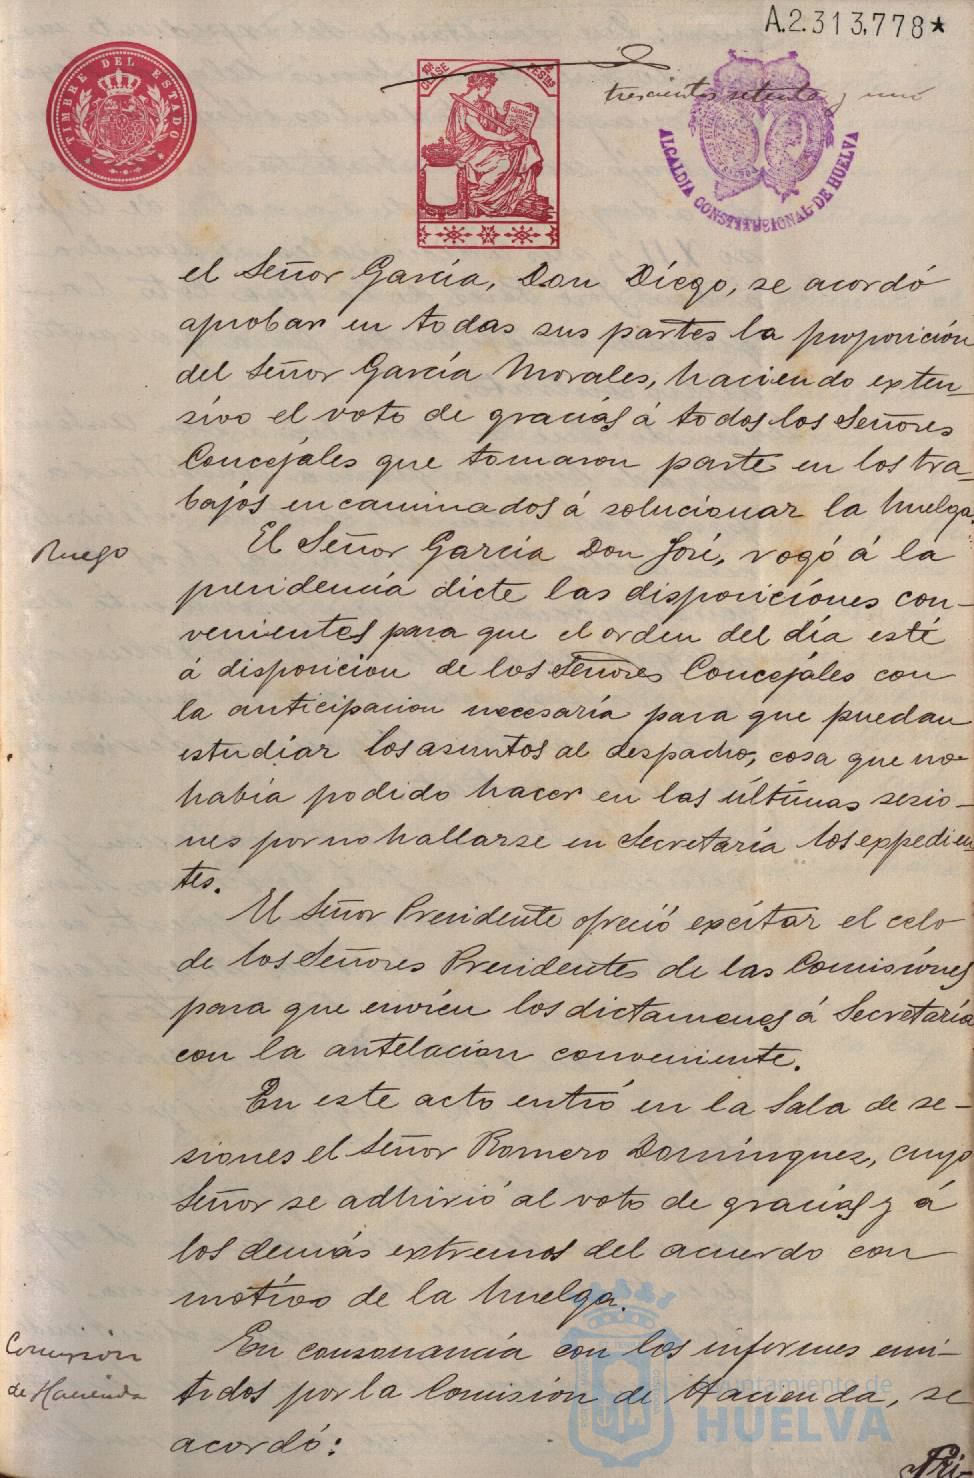 A.2.313,778★
TIMBRE DEL ESTADO
10ª CLASE
2 PESETAS
trescientos setenta y uno
ALCALDIA CONSTITUCIONAL DE HUELVA
el Señor García, Don Diego, se acordó
aprobar en todas sus partes la proposición
del Señor García Morales, haciendo exten-
sivo el voto de gracias á todos los Señores
Concejales que tomaron parte en los tra-
bajos encaminados á solucionar la huelga.
Ruego
El Señor García Don José, rogó á la
presidencia dicte las disposiciones con-
venientes para que el orden del día esté
á disposicion de los Señores Concejales con
la anticipacion necesaria para que puedan
estudiar los asuntos al despacho, cosa que no
había podido hacer en las últimas sesio-
nes por no hallarse en Secretaría los expedien-
tes.
El Señor Presidente ofreció excitar el celo
de los Señores Presidentes de las Comisiones
para que envíen los dictamenes á Secretaría
con la antelacion conveniente.
En este acto entró en la Sala de se-
siones el Señor Romero Domínguez, cuyo
Señor se adhirió al voto de gracias y á
los demás extremos del acuerdo con
motivo de la huelga.
Comisión
de Hacienda
En consonancia con los informes emi-
tidos por la Comisión de Hacienda, se
acordó:
Pri-
Ayuntamiento de
HUELVA